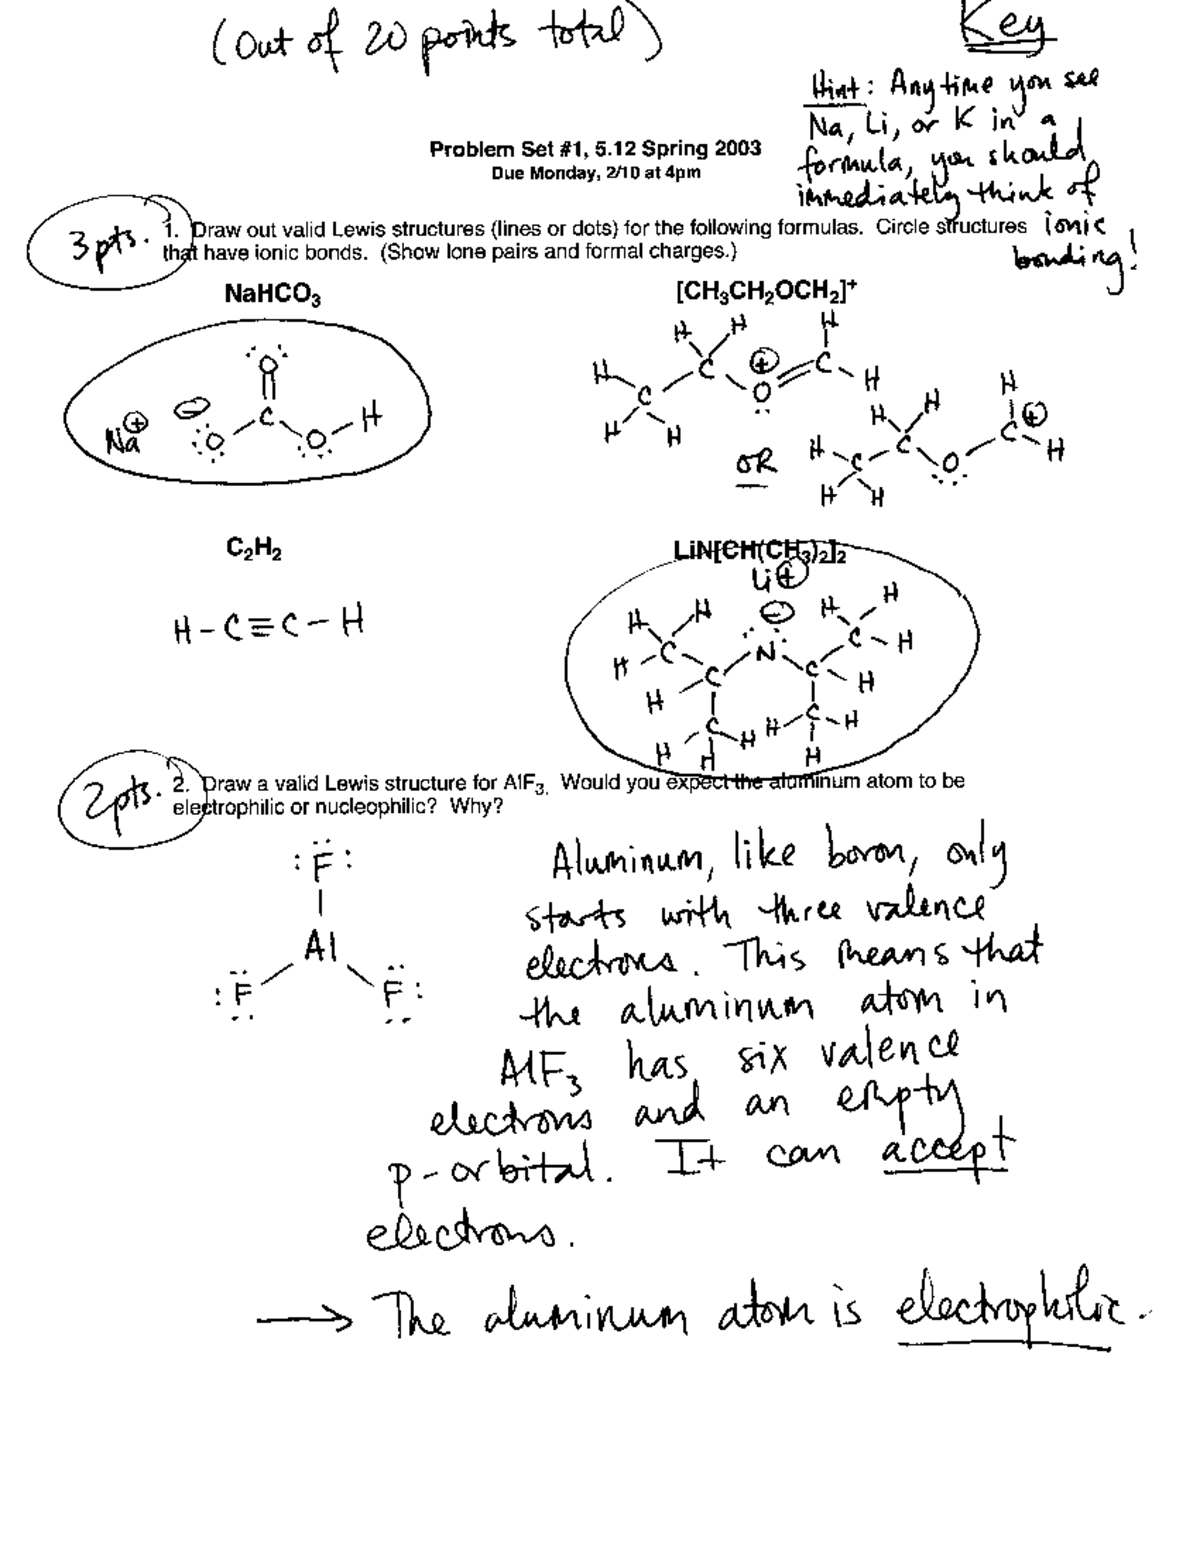 (Out of 20 points total)
Key
Hint: Anytime you see
Na, Li, or K in a
formula, you should
immediately think of
ionic
bonding!
Problem Set #1, 5.12 Spring 2003
Due Monday, 2/10 at 4pm
3pts.
1. Draw out valid Lewis structures (lines or dots) for the following formulas. Circle structures
that have ionic bonds. (Show lone pairs and formal charges.)
NaHCO3
[CH3CH2OCH2]+
Na ⊕ ⊖ O C O O H
H H H H H C C O ⊕ C H H
OR
H H H H H C C O C ⊕ H H
C2H2
H-C≡C-H
LiN[CH(CH3)2]2
Li ⊕
⊖
H H H C N C H H H
H C C H
H C H H H C H H
2pts.
2. Draw a valid Lewis structure for AlF3. Would you expect the aluminum atom to be
electrophilic or nucleophilic? Why?
:F:
Al
:F F:
Aluminum, like boron, only
starts with three valence
electrons. This means that
the aluminum atom in
AlF3 has six valence
electrons and an empty
p-orbital. It can accept
electrons.
→ The aluminum atom is electrophilic.